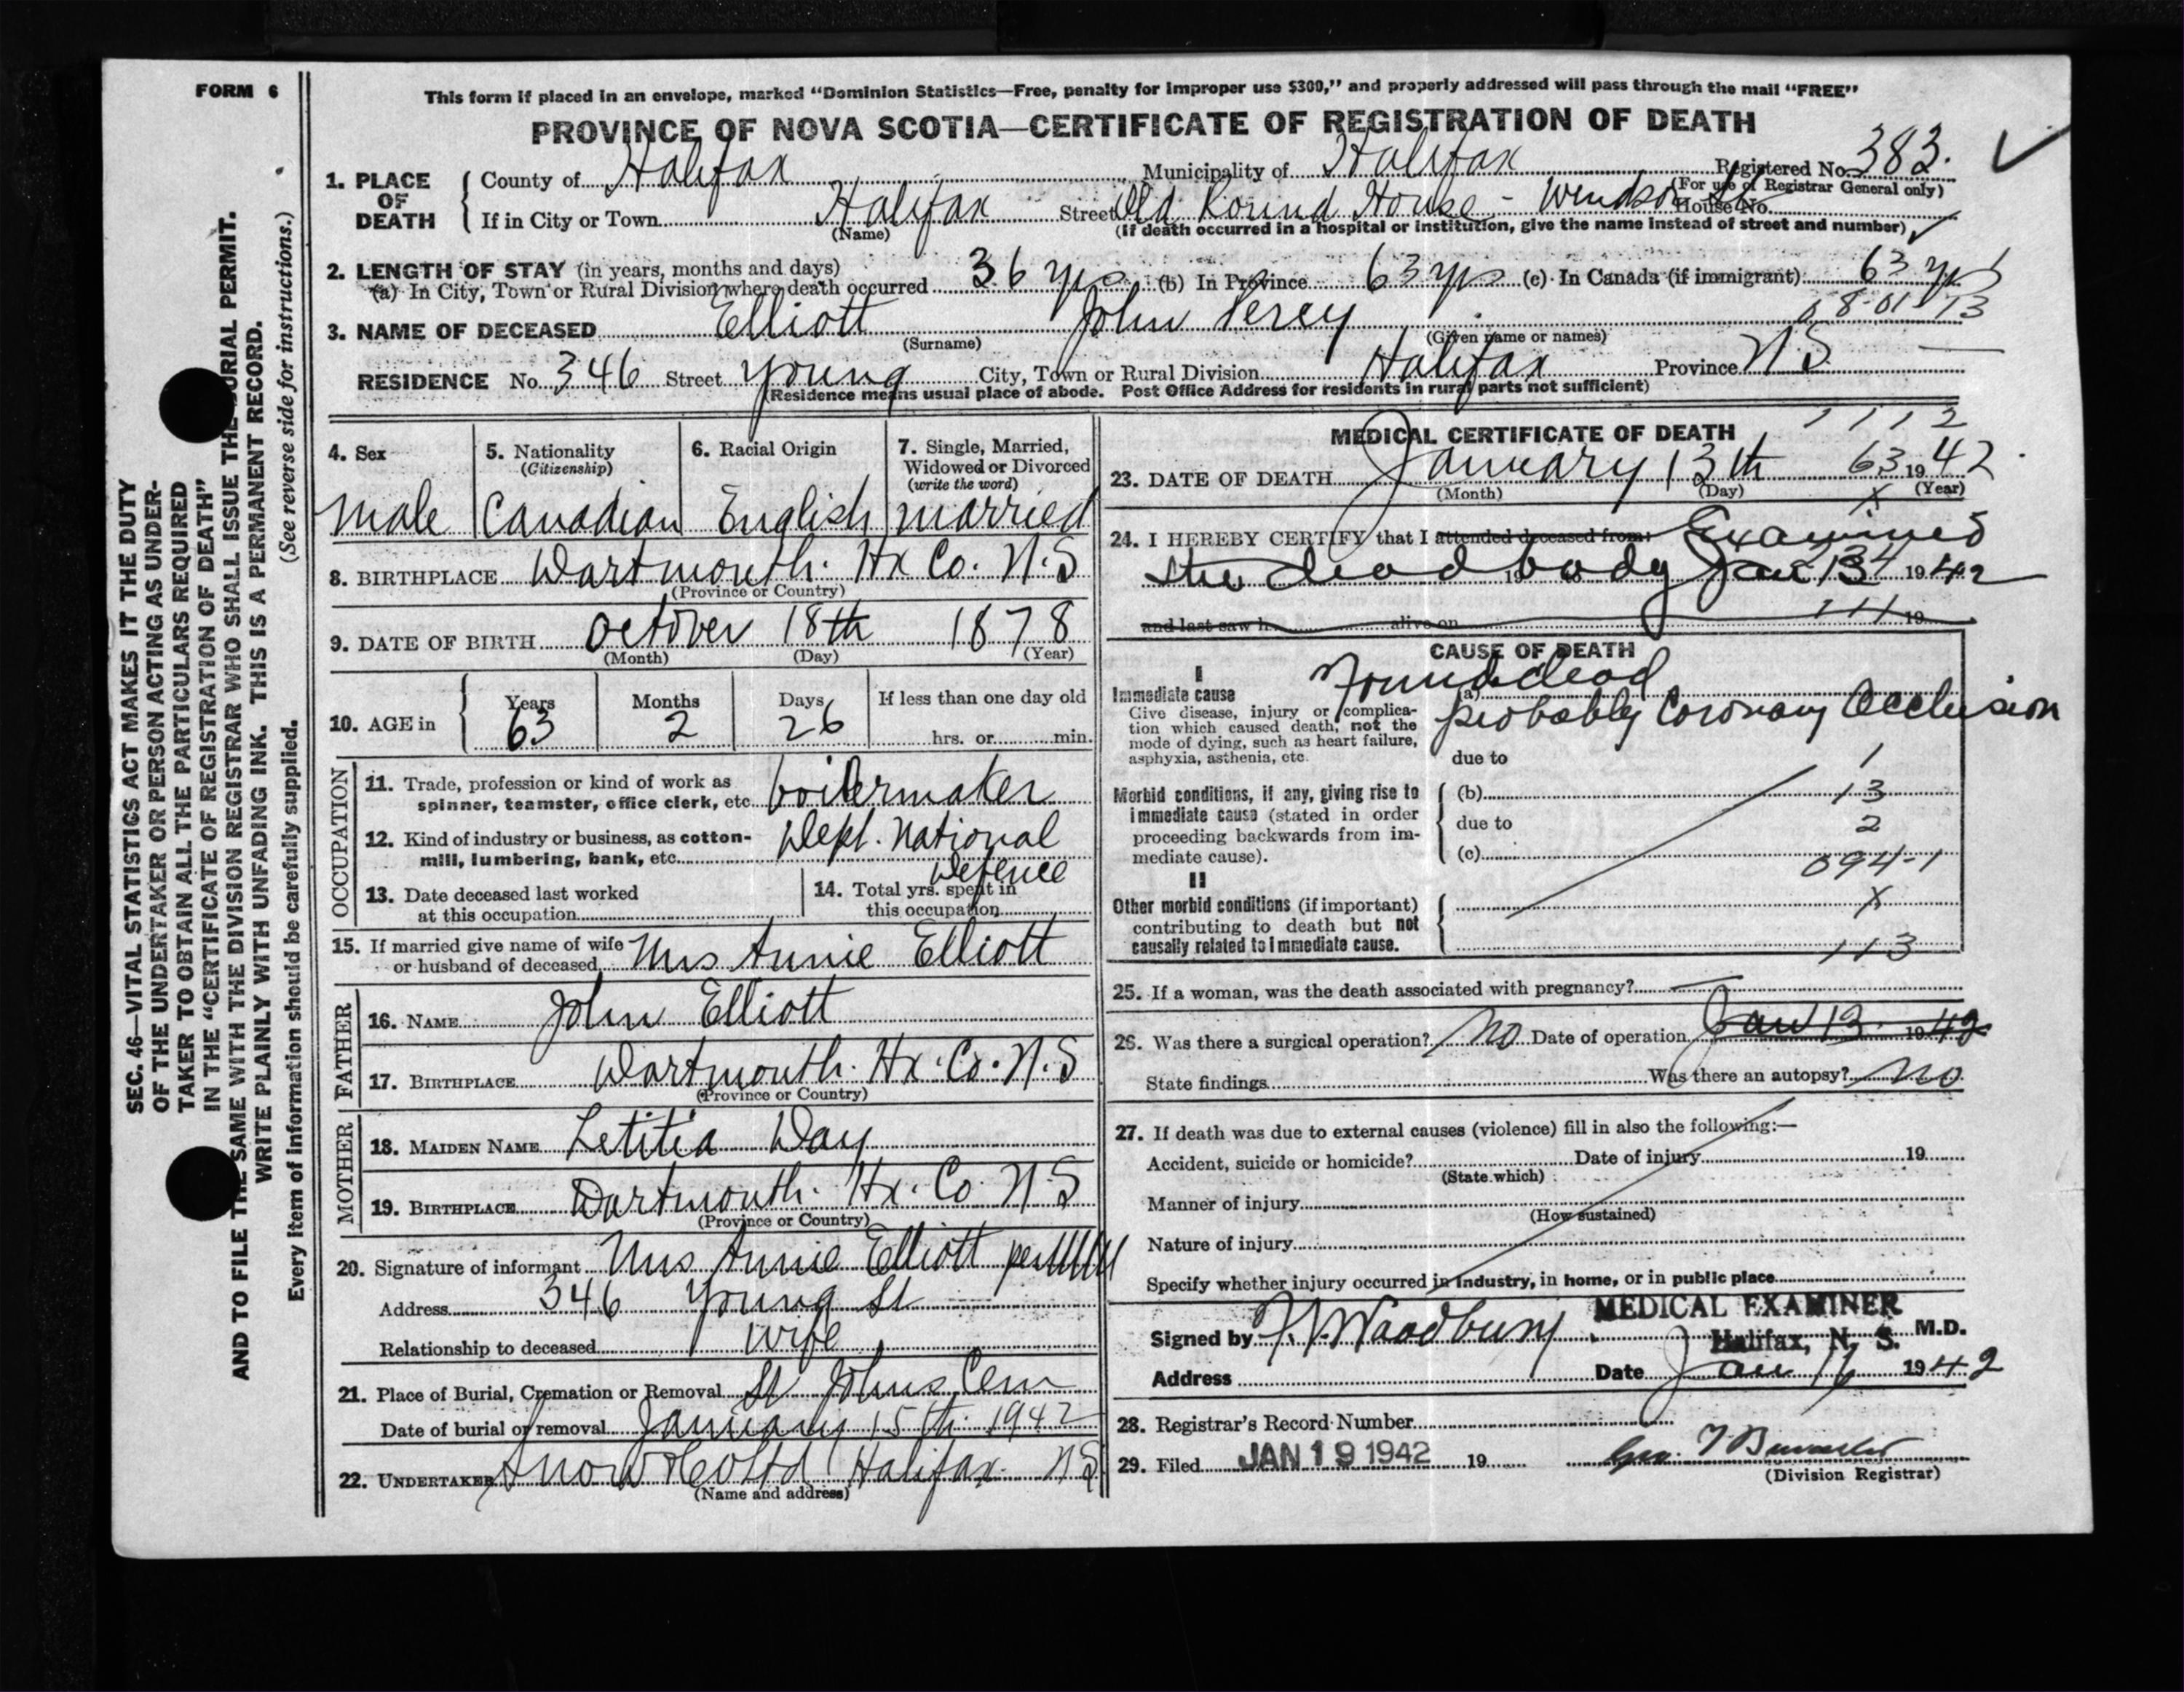 FORM 6
This form if placed in an envelope, marked “Dominion Statistics—Free, penalty for improper use $300,” and properly addressed will pass through the mail “FREE”
PROVINCE OF NOVA SCOTIA—CERTIFICATE OF REGISTRATION OF DEATH
1. PLACE OF DEATH
County of Halifax Municipality of Halifax Registered No. 383.
(For use of Registrar General only)
If in City or Town Halifax Street Old Round House - Windsor St House No.
(Name) (If death occurred in a hospital or institution, give the name instead of street and number)
2. LENGTH OF STAY (in years, months and days)
(a) In City, Town or Rural Division where death occurred 36 yrs (b) In Province 63 yrs (c) In Canada (if immigrant) 63 yrs
08-01-13
3. NAME OF DECEASED Elliott John Percy
(Surname) (Given name or names)
RESIDENCE No. 346 Street Young City, Town or Rural Division Halifax Province N S
(Residence means usual place of abode. Post Office Address for residents in rural parts not sufficient)
4. Sex
male
5. Nationality
(Citizenship)
Canadian
6. Racial Origin
English
7. Single, Married,
Widowed or Divorced
(write the word)
married
8. BIRTHPLACE Dartmouth. Hx Co. N.S
(Province or Country)
9. DATE OF BIRTH October 18th 1878
(Month) (Day) (Year)
10. AGE in
Years 63
Months 2
Days 26
If less than one day old
hrs. or min.
OCCUPATION
11. Trade, profession or kind of work as
spinner, teamster, office clerk, etc. boilermaker
12. Kind of industry or business, as cotton-
mill, lumbering, bank, etc. Dept. National
Defence
13. Date deceased last worked
at this occupation
14. Total yrs. spent in
this occupation
15. If married give name of wife
or husband of deceased Mrs Annie Elliott
FATHER
16. NAME John Elliott
17. BIRTHPLACE Dartmouth. Hx. Co. N.S
(Province or Country)
MOTHER
18. MAIDEN NAME Letitia Day
19. BIRTHPLACE Dartmouth. Hx. Co. N.S
(Province or Country)
20. Signature of informant Mrs Annie Elliott per
Address 346 Young St
Relationship to deceased wife
21. Place of Burial, Cremation or Removal St Johns Cem
Date of burial or removal January 15th. 1942
22. UNDERTAKER Snow & Co Ltd Halifax N S
(Name and address)
1 1 1 2
MEDICAL CERTIFICATE OF DEATH
23. DATE OF DEATH January 13th 63 1942
(Month) (Day) (Year)
x
24. I HEREBY CERTIFY that I attended deceased from: Examined
the dead body Jan 13 1942
and last saw h alive on 19
111
CAUSE OF DEATH
I
Immediate cause
Give disease, injury or complica-
tion which caused death, not the
mode of dying, such as heart failure,
asphyxia, asthenia, etc.
Found dead
(a) probably Coronary Occlusion
due to
1
Morbid conditions, if any, giving rise to
immediate cause (stated in order
proceeding backwards from im-
mediate cause).
(b) 13
due to 2
(c) 094-1
II
Other morbid conditions (if important)
contributing to death but not
causally related to immediate cause.
x
113
25. If a woman, was the death associated with pregnancy?
26. Was there a surgical operation? No Date of operation Jan 13. 1942
State findings Was there an autopsy? No
27. If death was due to external causes (violence) fill in also the following:—
Accident, suicide or homicide? Date of injury 19
(State which)
Manner of injury
(How sustained)
Nature of injury
Specify whether injury occurred in industry, in home, or in public place
MEDICAL EXAMINER
Halifax, N. S.
Signed by Woodbury M.D.
Address Date Jan 1942
28. Registrar's Record Number
29. Filed JAN 19 1942 19
(Division Registrar)
SEC. 46—VITAL STATISTICS ACT MAKES IT THE DUTY
OF THE UNDERTAKER OR PERSON ACTING AS UNDER-
TAKER TO OBTAIN ALL THE PARTICULARS REQUIRED
IN THE “CERTIFICATE OF REGISTRATION OF DEATH”
AND TO FILE THE SAME WITH THE DIVISION REGISTRAR WHO SHALL ISSUE THE BURIAL PERMIT.
WRITE PLAINLY WITH UNFADING INK. THIS IS A PERMANENT RECORD.
Every item of information should be carefully supplied. (See reverse side for instructions.)